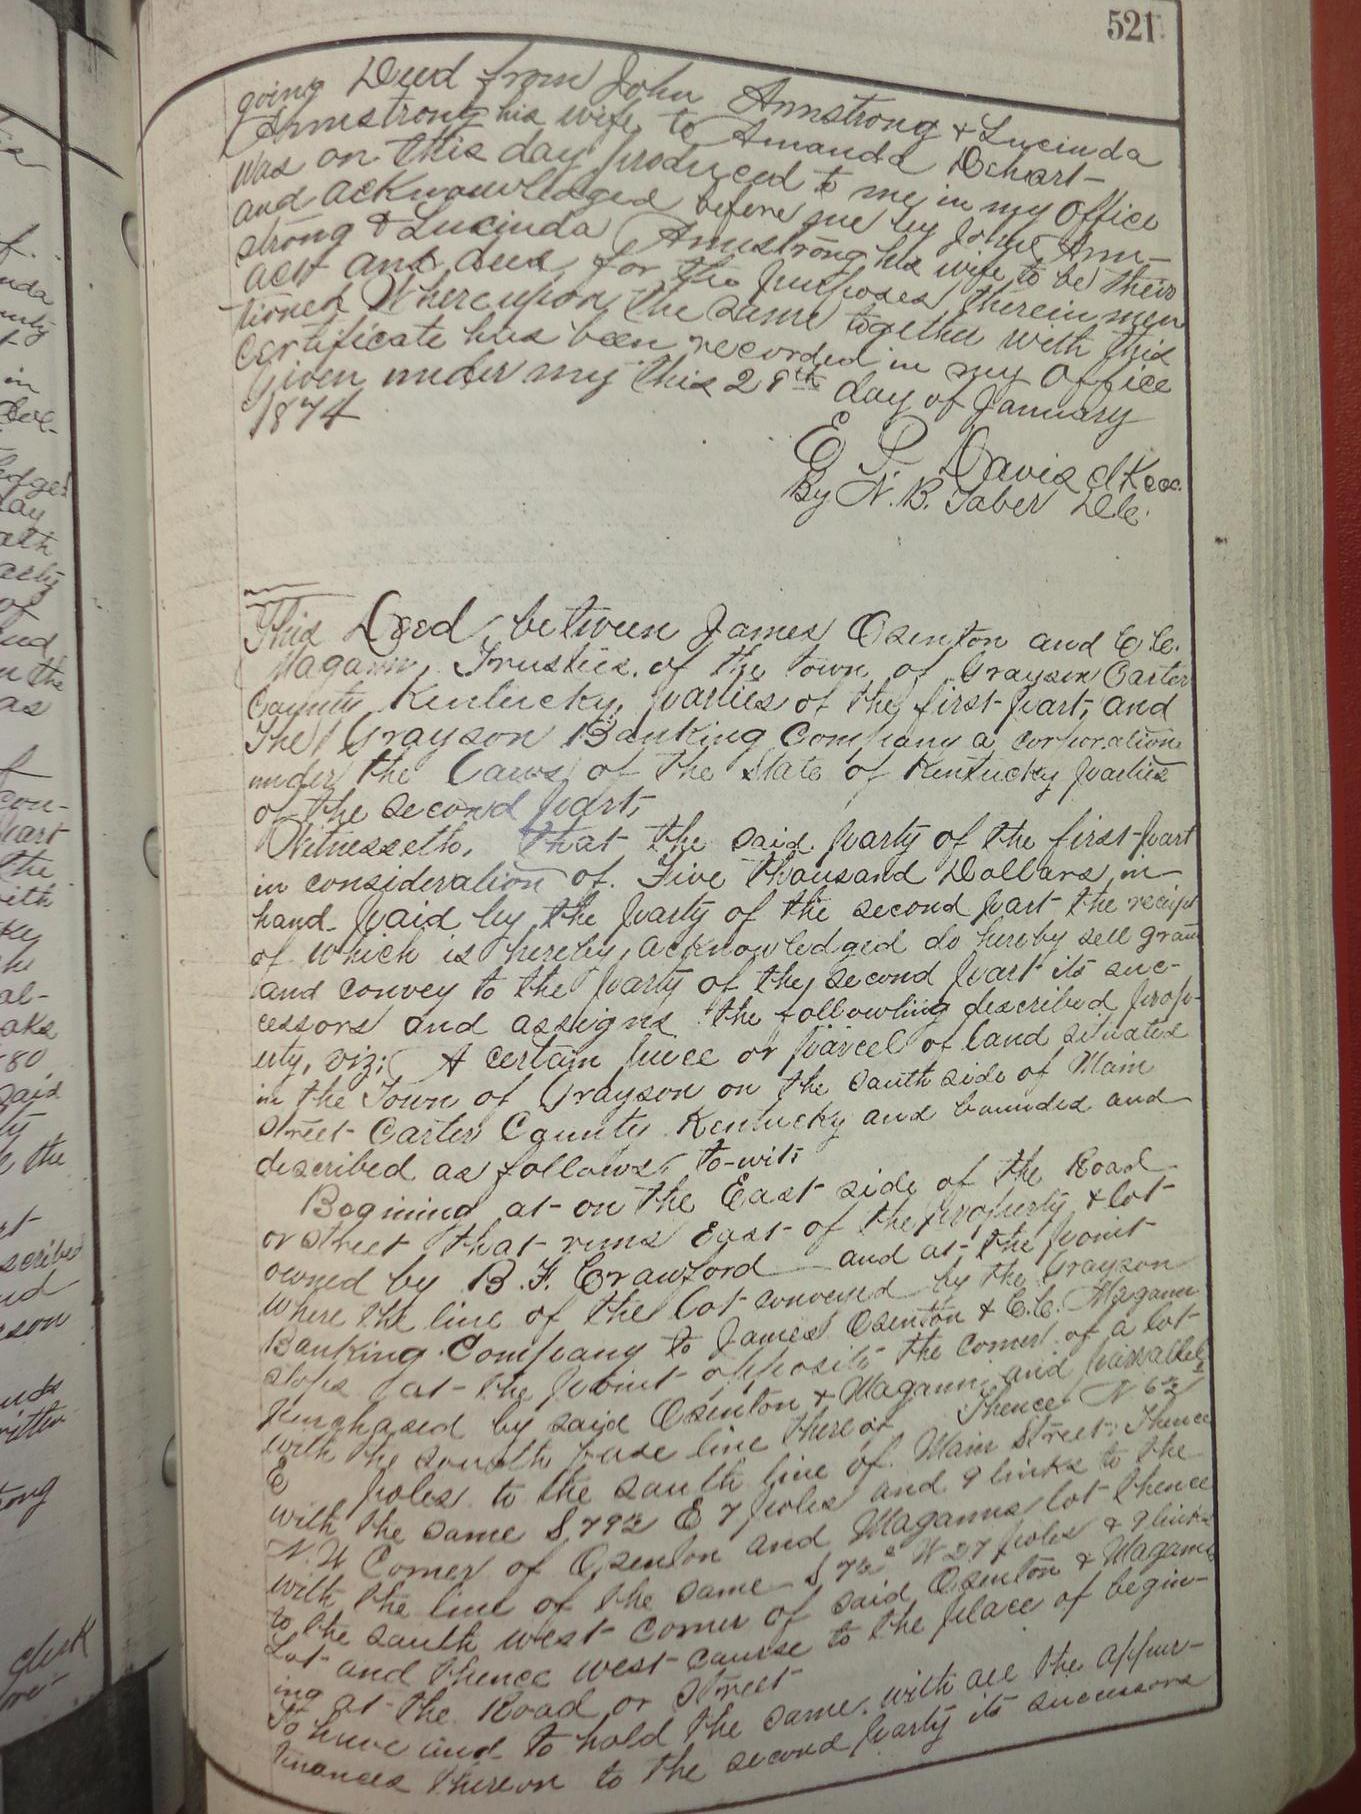 521
going Deed from John Armstrong & Lucinda
Armstrong his wife, to Amanda Dehart
was on this day produced to me in my Office
and acknowledged before me by John Arm-
strong & Lucinda Armstrong his wife to be their
act and deed for the purposes therein men
tioned Whereupon the same together with this
certificate has been recorded in my Office
Given under my this 28th day of January
1874
E P Davis clk cc.
By N. B. Taber D.C.
This Deed between James Osenton and C. C.
Magann, Trustees of the town of Grayson Carter
County Kentucky, parties of the first part, and
The Grayson Banking Company a corporation
under the Laws of the State of Kentucky parties
of the second part,
Witnesseth, that the said party of the first part
in consideration of Five thousand Dollars in
hand paid by the party of the second part the receipt
of which is hereby acknowledged do hereby sell grant
and convey to the party of the second part its suc-
cessors and assigns the following described prop-
erty, viz; A certain piece or parcel of land situated
in the Town of Grayson on the south side of Main
street Carter County Kentucky and bounded and
described as follows, to-wit;
Begining at on the East side of the Road
or street that runs East of the property & lot
owned by B. F. Crawford and at the point
where the line of the lot conveyed by the Grayson
Banking Company to James Osenton & C.C. Magann
stops at the point opposite the corner of a lot
purchased by said Osenton & Magann and parrallel
with the south base line thereof Thence N 6½
E poles to the south line of Main Street; Thence
with the same S 79½ E 7 poles and 9 links to the
N. W Corner of Osenton and Maganns lot thence
with the line of the same S 7½° W 27 poles & 9 links
to the south west corner of said Osenton & Magann
Lot and thence west course to the place of begin-
ing at the Road or street
To have and to hold the same, with all the appur-
tinances thereon to the second party its successors